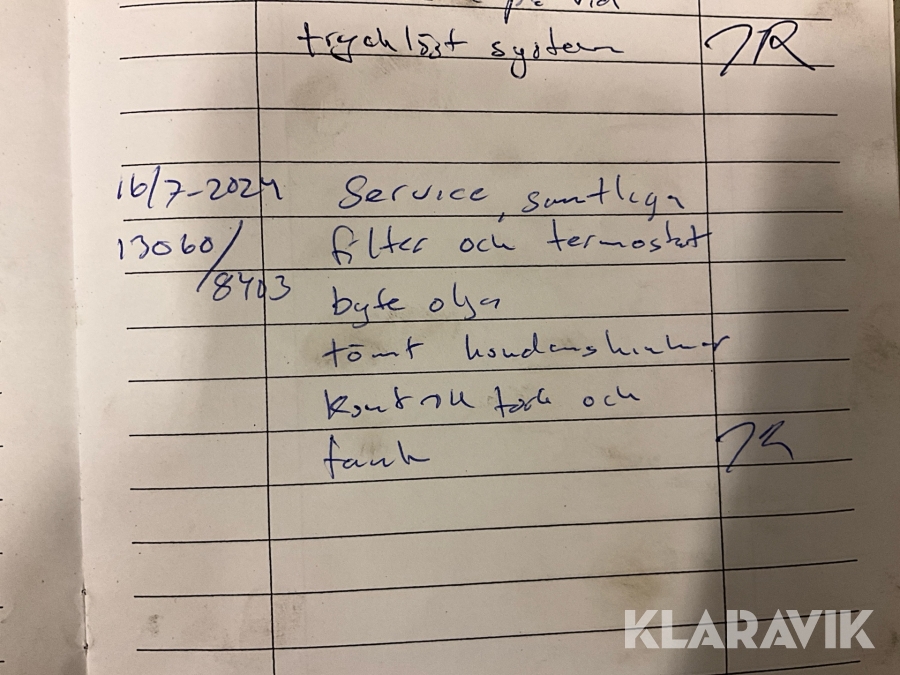 på vid
trycklöst system JR
16/7-2024 Service, samtliga
13060/ filter och termostat
8403 byte olja
tömt kondenshinkar
Kontroll tork och
tank JR
KLARAVIK